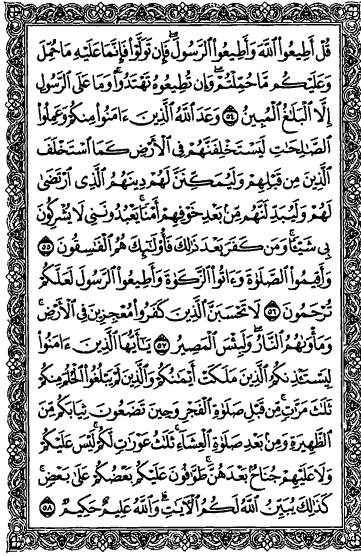 قُلْ أَطِيعُوا۟ ٱللَّهَ وَأَطِيعُوا۟ ٱلرَّسُولَ ۖ فَإِن تَوَلَّوْا۟ فَإِنَّمَا عَلَيْهِ مَا حُمِّلَ
وَعَلَيْكُم مَّا حُمِّلْتُمْ ۖ وَإِن تُطِيعُوهُ تَهْتَدُوا۟ ۚ وَمَا عَلَى ٱلرَّسُولِ
إِلَّا ٱلْبَلَـٰغُ ٱلْمُبِينُ ۝٥٤ وَعَدَ ٱللَّهُ ٱلَّذِينَ ءَامَنُوا۟ مِنكُمْ وَعَمِلُوا۟
ٱلصَّـٰلِحَـٰتِ لَيَسْتَخْلِفَنَّهُمْ فِى ٱلْأَرْضِ كَمَا ٱسْتَخْلَفَ
ٱلَّذِينَ مِن قَبْلِهِمْ وَلَيُمَكِّنَنَّ لَهُمْ دِينَهُمُ ٱلَّذِى ٱرْتَضَىٰ
لَهُمْ وَلَيُبَدِّلَنَّهُم مِّنۢ بَعْدِ خَوْفِهِمْ أَمْنًا ۚ يَعْبُدُونَنِى لَا يُشْرِكُونَ
بِى شَيْـًٔا ۚ وَمَن كَفَرَ بَعْدَ ذَٰلِكَ فَأُو۟لَـٰٓئِكَ هُمُ ٱلْفَـٰسِقُونَ ۝٥٥
وَأَقِيمُوا۟ ٱلصَّلَوٰةَ وَءَاتُوا۟ ٱلزَّكَوٰةَ وَأَطِيعُوا۟ ٱلرَّسُولَ لَعَلَّكُمْ
تُرْحَمُونَ ۝٥٦ لَا تَحْسَبَنَّ ٱلَّذِينَ كَفَرُوا۟ مُعْجِزِينَ فِى ٱلْأَرْضِ ۚ
وَمَأْوَىٰهُمُ ٱلنَّارُ ۖ وَلَبِئْسَ ٱلْمَصِيرُ ۝٥٧ يَـٰٓأَيُّهَا ٱلَّذِينَ ءَامَنُوا۟
لِيَسْتَـْٔذِنكُمُ ٱلَّذِينَ مَلَكَتْ أَيْمَـٰنُكُمْ وَٱلَّذِينَ لَمْ يَبْلُغُوا۟ ٱلْحُلُمَ مِنكُمْ
ثَلَـٰثَ مَرَّٰتٍ ۚ مِّن قَبْلِ صَلَوٰةِ ٱلْفَجْرِ وَحِينَ تَضَعُونَ ثِيَابَكُم مِّنَ
ٱلظَّهِيرَةِ وَمِنۢ بَعْدِ صَلَوٰةِ ٱلْعِشَآءِ ۚ ثَلَـٰثُ عَوْرَٰتٍ لَّكُمْ ۚ لَيْسَ عَلَيْكُمْ
وَلَا عَلَيْهِمْ جُنَاحٌۢ بَعْدَهُنَّ ۚ طَوَّٰفُونَ عَلَيْكُم بَعْضُكُمْ عَلَىٰ بَعْضٍ ۚ
كَذَٰلِكَ يُبَيِّنُ ٱللَّهُ لَكُمُ ٱلْـَٔايَـٰتِ ۗ وَٱللَّهُ عَلِيمٌ حَكِيمٌ ۝٥٨